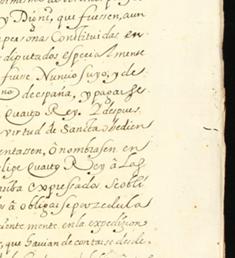 y Dignid, que fuessen, aun
persona Constituidas en
diputados especialmense
fuise Nuncio suyo, y de
no de españa, y pagar se
quarto Rey. Y despues
virtud de Sancta obedien
entassen, ò nombrasen en
lipe Quarto Rey à Las
riba expressados se obli
s à obligar se por zedula
ciente mente en la expedision
, que hauian de contarse desde